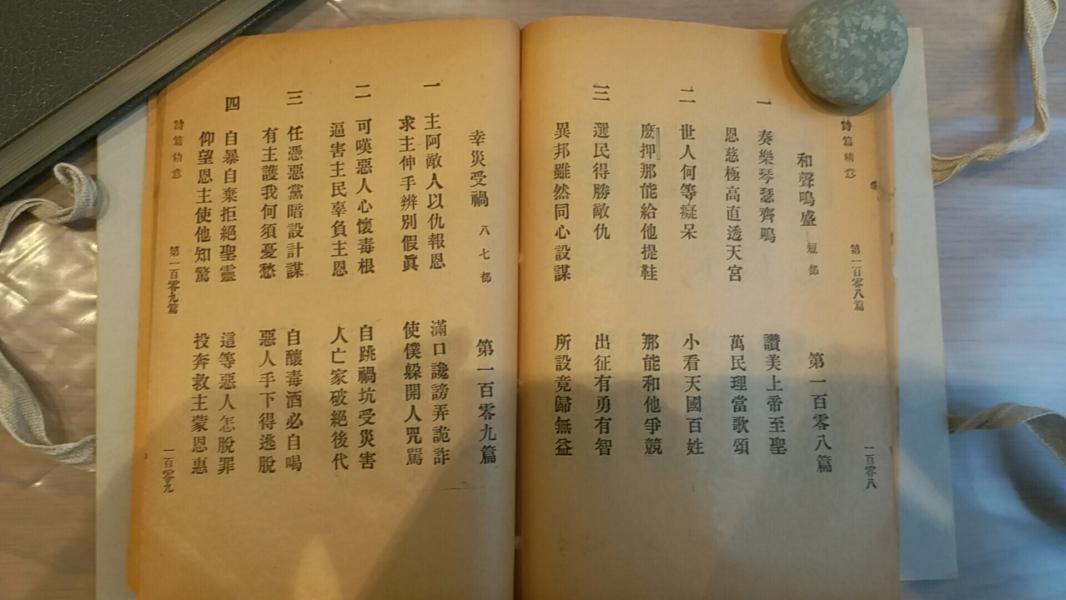 詩篇精意 第一百零八篇 一百零八
和聲鳴盛 短部 第一百零八篇
一 奏樂琴瑟齊鳴 讚美上帝至聖
恩慈極高直透天宮 萬民理當歌頌
二 世人何等癡呆 小看天國百姓
麽押那能給他提鞋 那能和他爭競
三 選民得勝敵仇 出征有勇有智
異邦雖然同心設謀 所設竟歸無益
幸災受禍 八七部 第一百零九篇
一 主阿敵人以仇報恩 滿口讒謗弄詭詐
求主伸手辨別假眞 使僕躲開人咒罵
二 可嘆惡人心懷毒根 自跳禍坑受災害
逼害主民辜負主恩 人亡家破絕後代
三 任憑惡黨暗設計謀 自釀毒酒必自喝
有主護我何須憂愁 惡人手下得逃脫
四 自暴自棄拒絕聖靈 這等惡人怎脫罪
仰望恩主使他知驚 投奔救主蒙恩惠
詩篇精意 第一百零九篇 一百零九